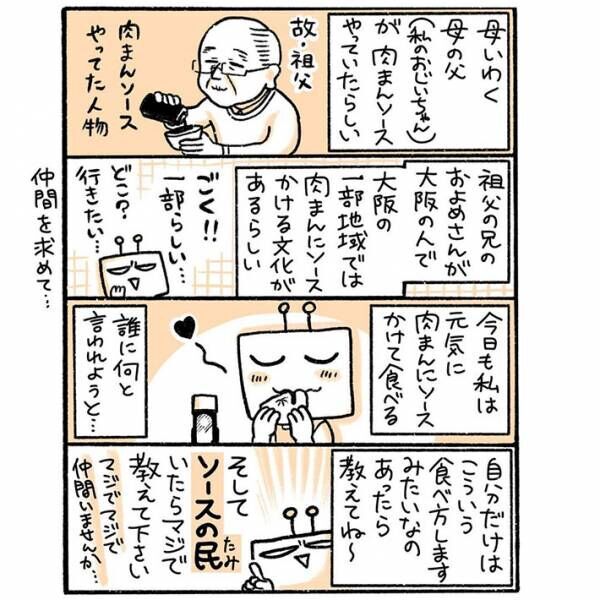 母いわく
母の父
(私のおじいちゃん)
が 肉まんソース
やっていたらしい
故・祖父
肉まんソース
やってた人物
祖父の兄の
およめさんが
大阪の人で
大阪の
一部地域では
肉まんにソース
かける文化が
あるらしい
ごく!!
一部らしい…
どこ?
行きたい…
仲間を求めて…
今日も私は
元気に
肉まんにソース
かけて食べる
誰に何と
言われようと…
自分だけは
こういう
食べ方します
みたいなの
あったら
教えてね〜
そして
ソースの民
たみ
いたらマジで
教えて下さい
マジでマジで
仲間いませんか…